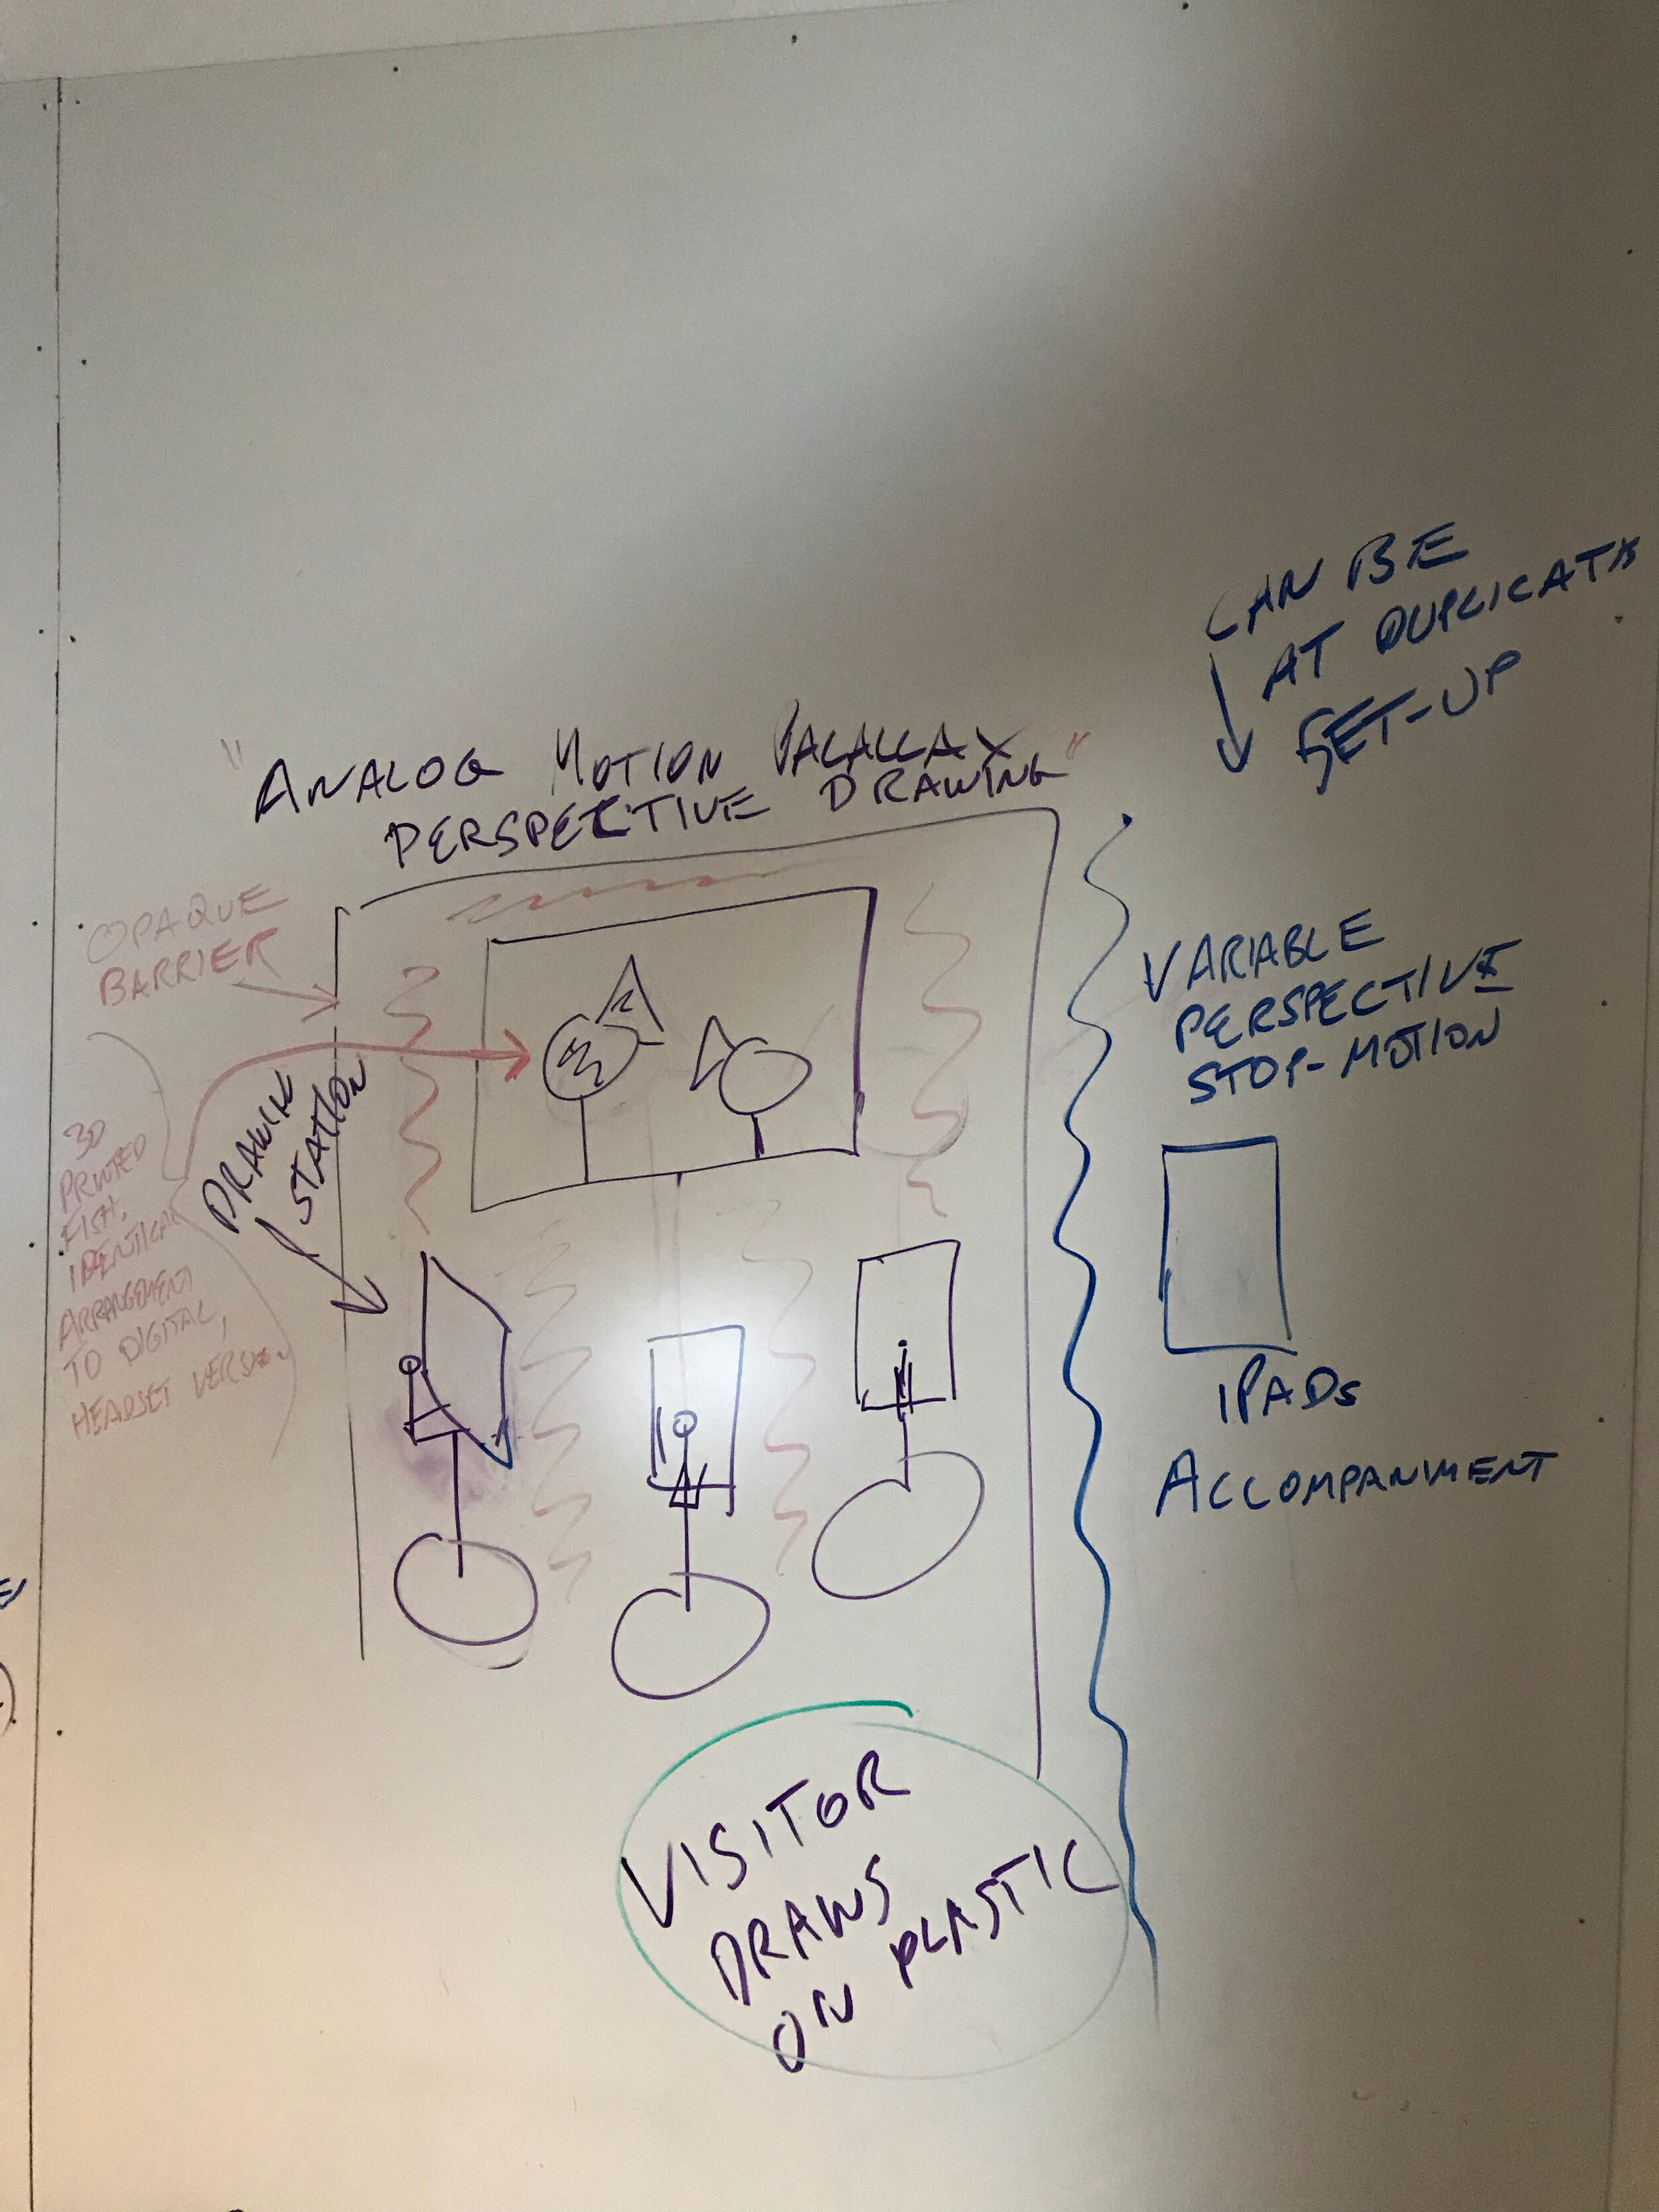 CAN BE
AT DUPLICATE
SET-UP
"ANALOG MOTION PARALLAX
PERSPECTIVE DRAWING"
OPAQUE
BARRIER
DRAWING
STATION
3D
PRINTED
FISH.
IDENTICAL
ARRANGEMENT
TO DIGITAL,
HEADSET VERSION.
VARIABLE
PERSPECTIVE
STOP-MOTION
IPADS
ACCOMPANIMENT
VISITOR
DRAWS
ON PLASTIC